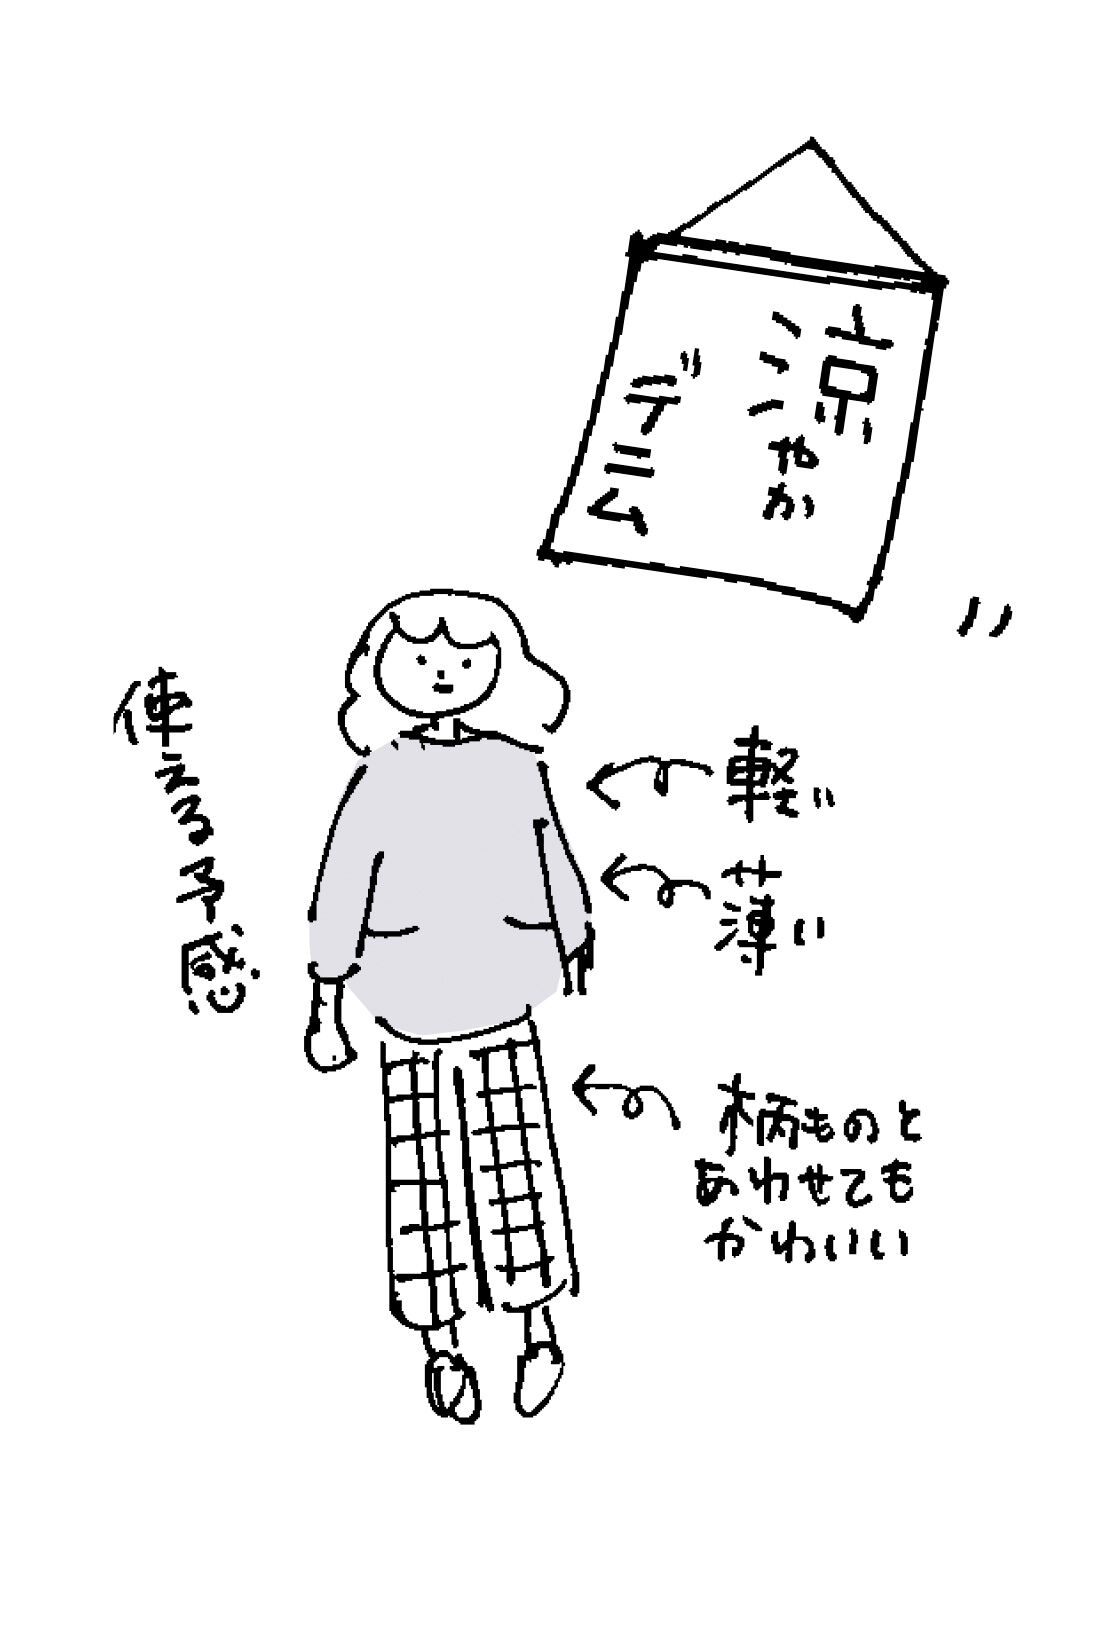 涼やか
デニム
使える予感
軽い
薄い
柄ものと
あわせても
かわいい